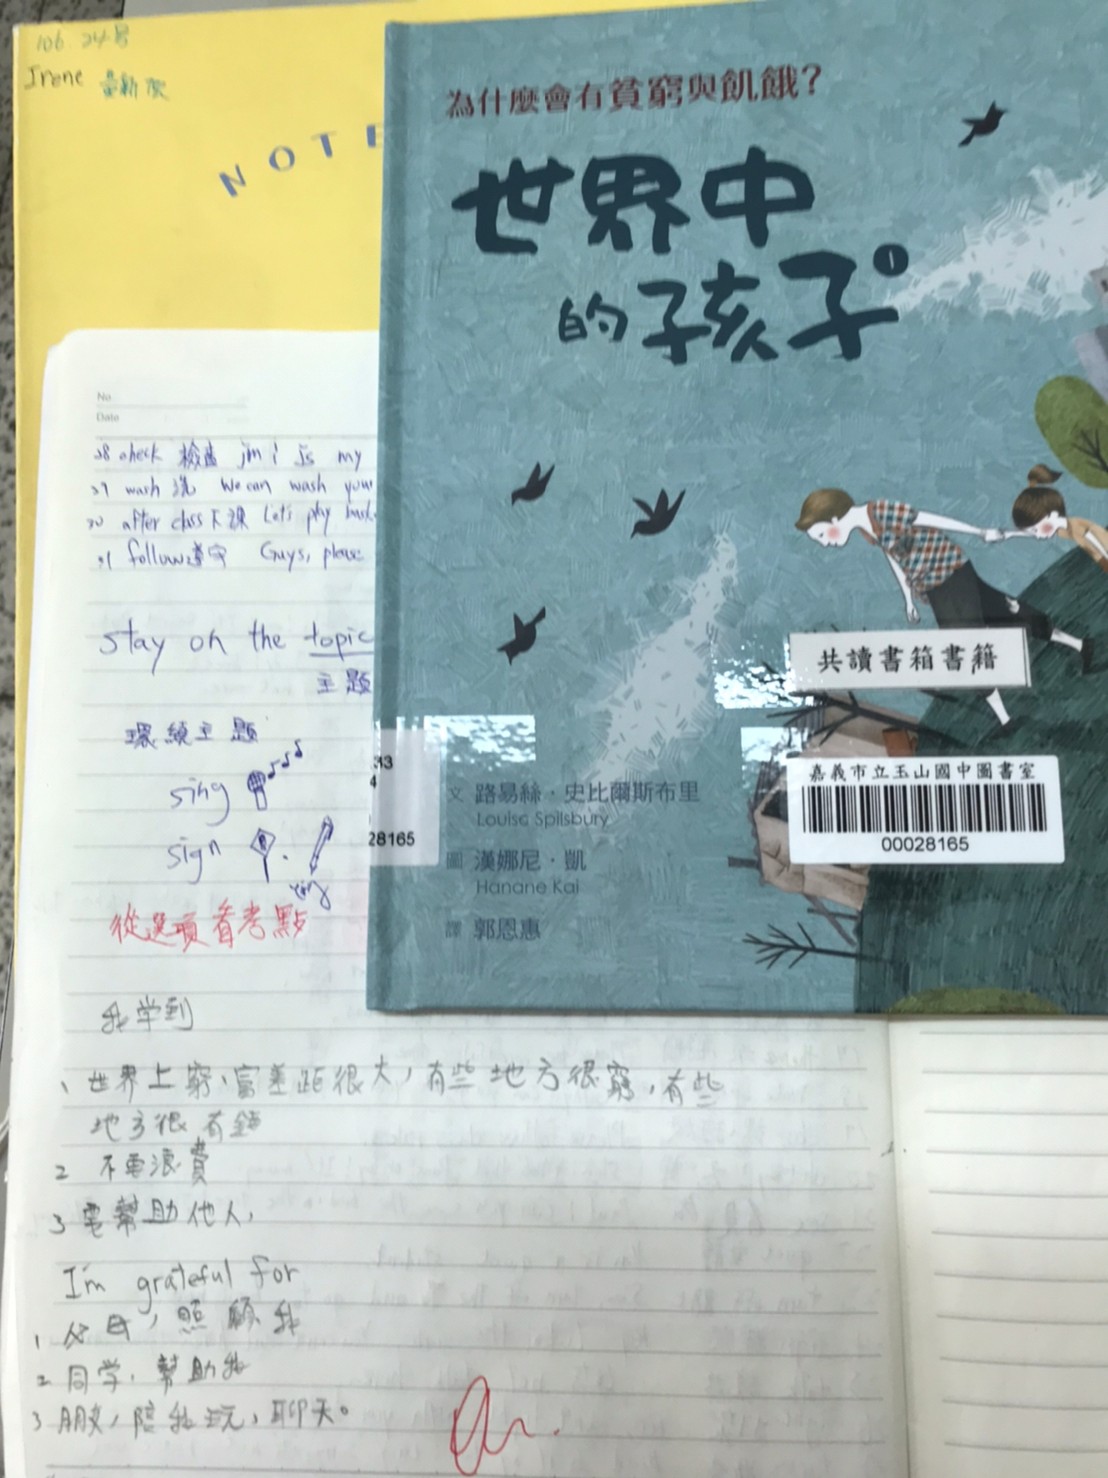 106 24号
Irene
NOTE
為什麼會有貧窮與飢餓?
世界中
的孩子 1
共讀書箱書籍
嘉義市立玉山國中圖書室
00028165
33
4
28165
文 路易絲・史比爾斯布里
Louise Spilsbury
圖 漢娜尼・凱
Hanane Kai
譯 郭恩惠
No
Date
28 check 檢查 is my
29 wash 洗 We can wash your
30 after class 下課 Let's play
31 follow 遵守 Guys, please
stay on the topic
主題
環繞主題
sing
sign
從選項看考點
我学到
1、世界上窮、富差距很大,有些地方很窮,有些
地方很有錢
2 不要浪費
3 要幫助他人,
I'm grateful for
1、父母,照顧我
2 同学,幫助我
3 朋友,陪我玩,聊天。